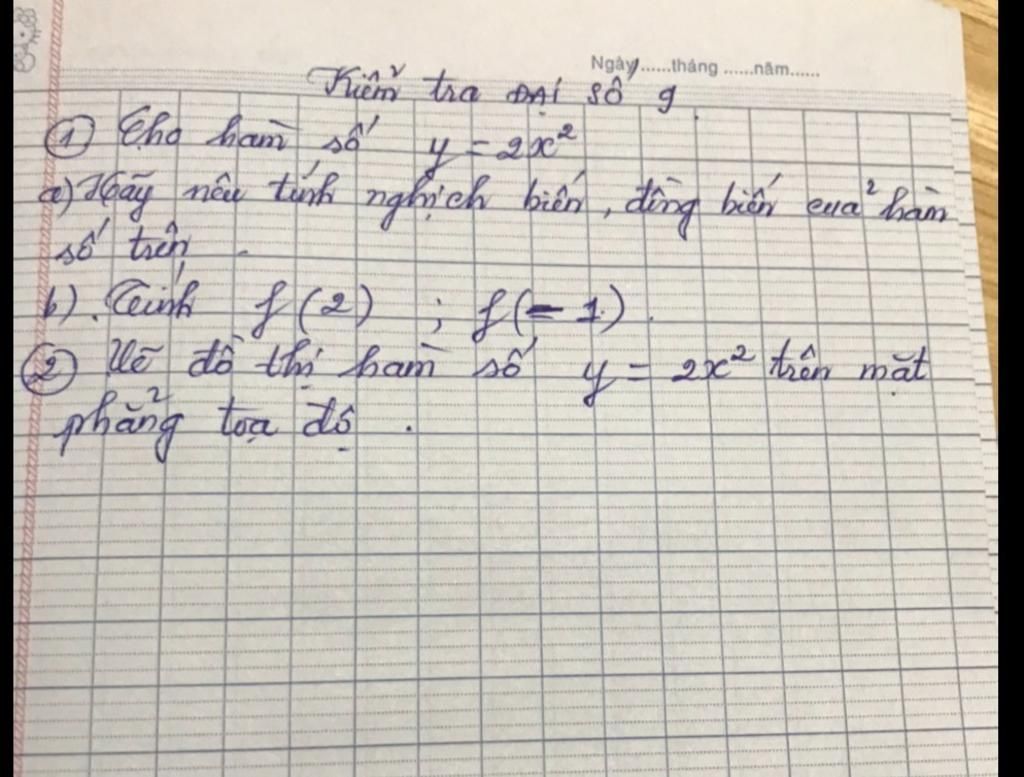 Ngày......tháng ......năm......
Kiểm tra ĐẠI Số 9
① Cho hàm số y = 2x²
a) Hãy nêu tính nghịch biến, đồng biến của hàm
số trên.
b). Tính f(2) ; f(-1).
② Vẽ đồ thị hàm số y = 2x² trên mặt
phẳng tọa độ.